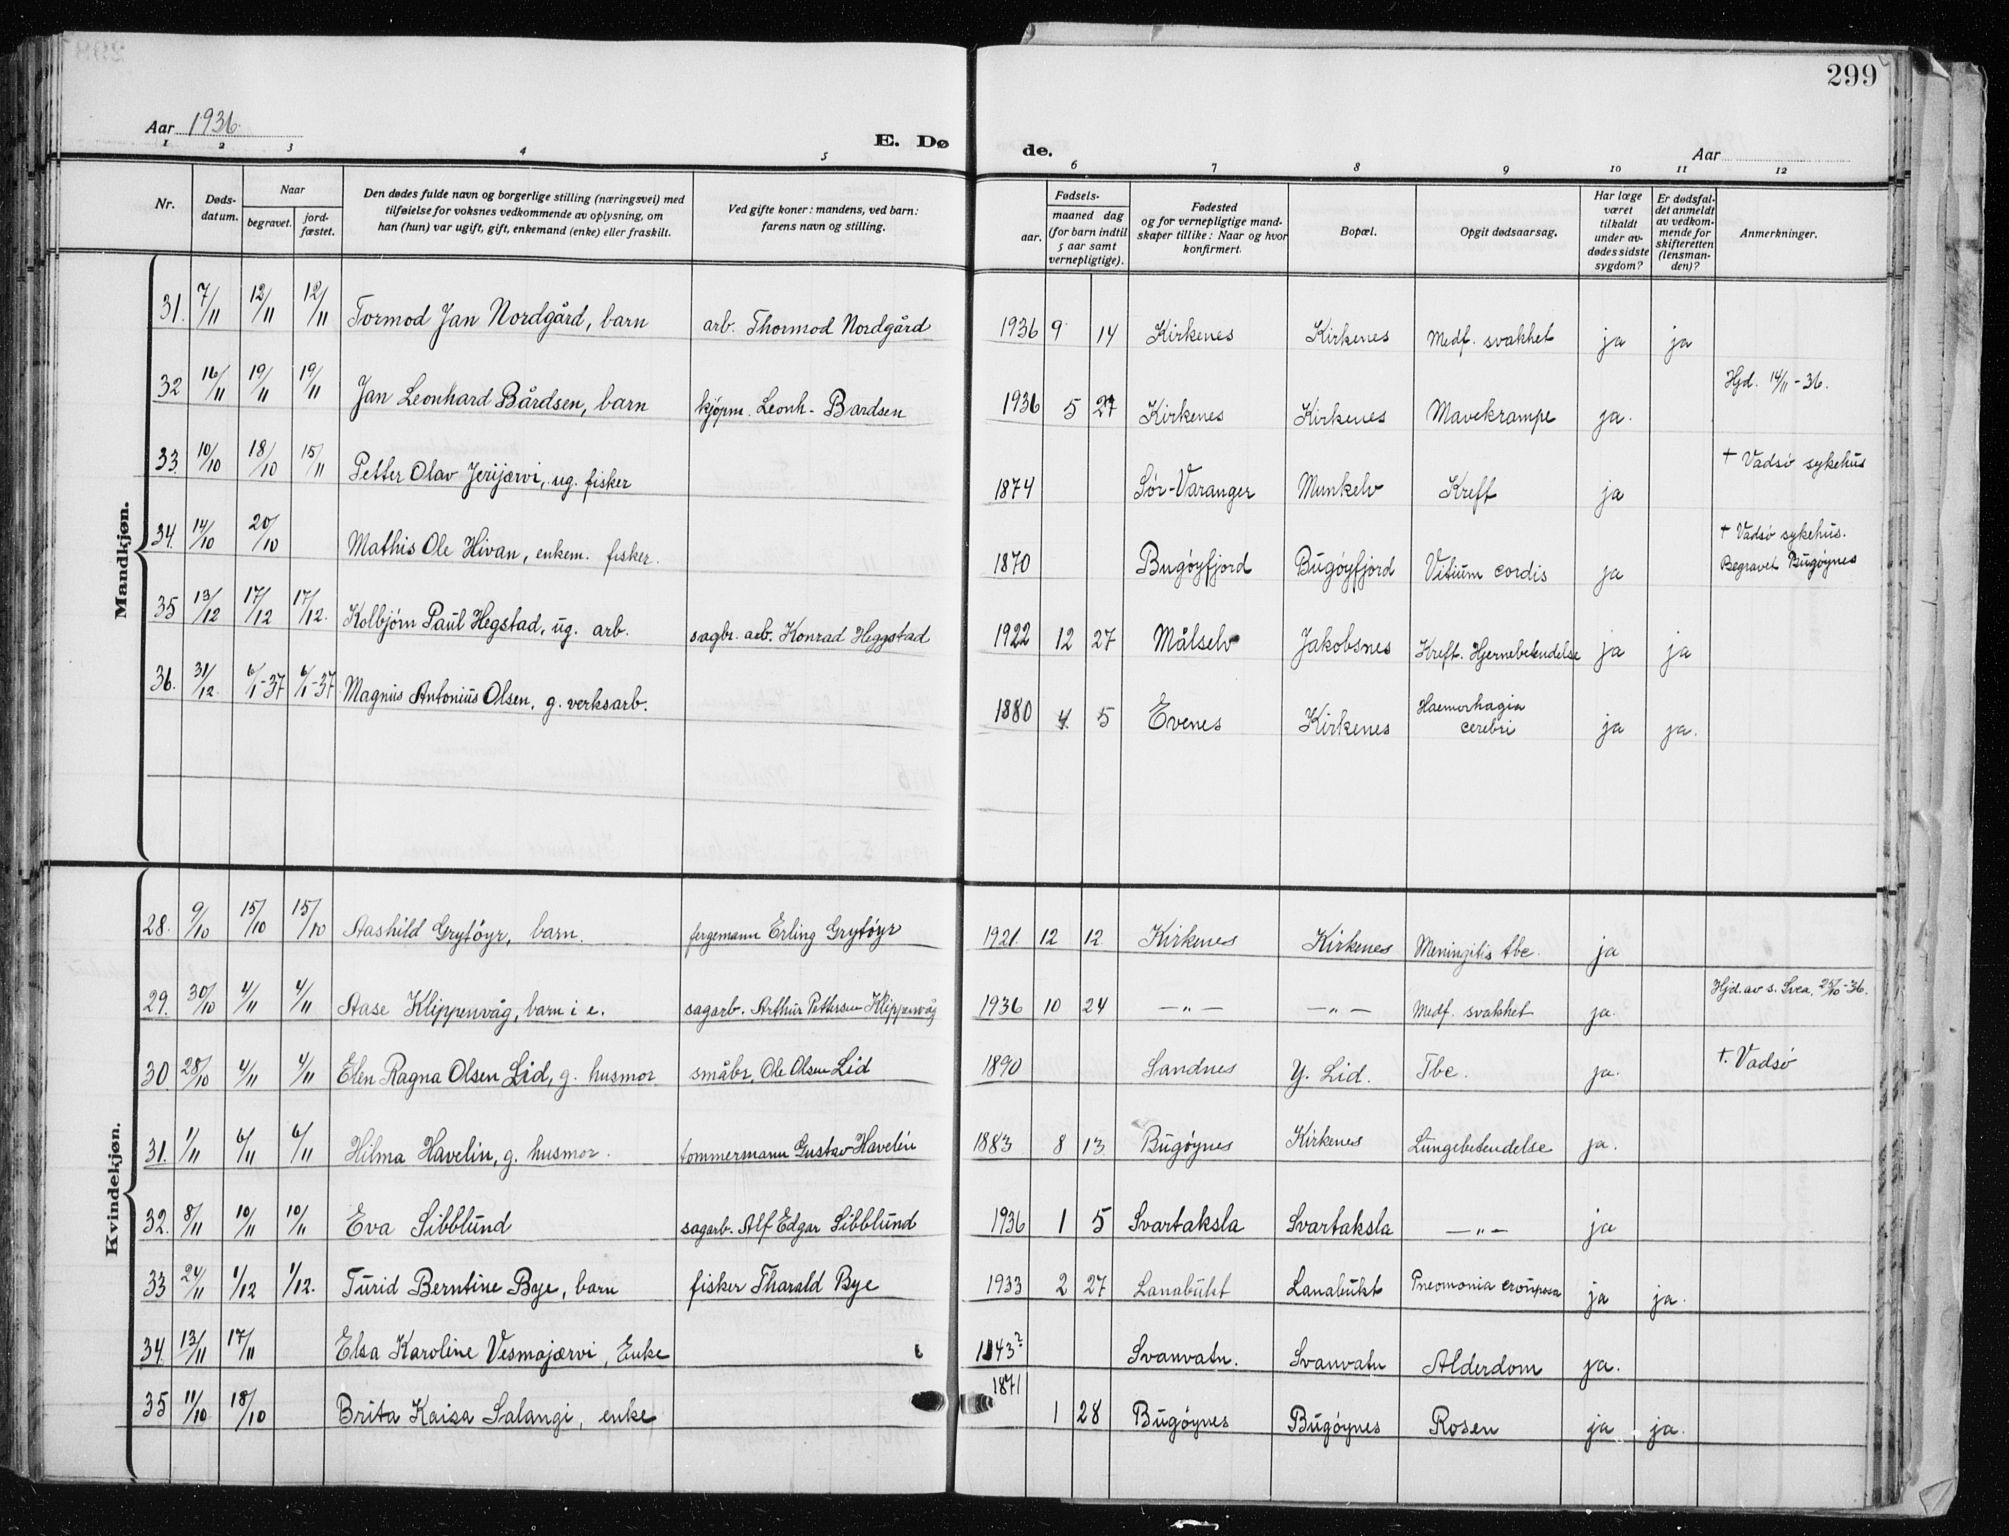 299
Aar 1936.
E. Dø de.
Aar
1 2 3 4 5 6 7 8 9 10 11 12
Nr. | Døds-datum. | Naar begravet. | jord-fæstet. | Den dødes fulde navn og borgerlige stilling (næringsvei) med tilføielse for voksnes vedkommende av oplysning, om han (hun) var ugift, gift, enkemand (enke) eller fraskilt. | Ved gifte koner: mandens, ved barn: farens navn og stilling. | Fødsels- aar. | maaned dag (for barn indtil 5 aar samt vernepligtige). | Fødested og for vernepligtige mandskaper tillike: Naar og hvor konfirmert. | Bopæl. | Opgit dødsaarsag. | Har læge været tilkaldt under avdødes sidste sygdom? | Er dødsfaldet anmeldt av vedkommende for skifteretten (lensmanden)? | Anmerkninger.
Mandkjøn.
31. 7/11 12/11 12/11 Tormod Jan Nordgård, barn arb. Thormod Nordgård 1936 9 14 Kirkenes Kirkenes Medf. svakhet ja ja
32 16/11 19/11 19/11 Jan Leonhard Bårdsen, barn kjøpm. Leonh. Bardsen 1936 5 27 Kirkenes Kirkenes Mavekrampe ja. Hjd. 14/11-36.
33. 10/10 18/10 15/11 Petter Olav Jerijærvi, ug. fisker 1874 Sør-Varanger Munkelv Kreft ja † Vadsø sykehus
34. 14/10 20/10 Mathis Ole Hivan, enkem. fisker. 1870 Bugøyfjord Bugøyfjord Vitium cordis ja † Vadsø sykehus. Begravet Bugøynes
35 13/12 17/12 17/12. Kolbjørn Paul Hegstad, ug. arb. sagbr. arb. Konrad Heggstad 1922 12 27 Målselv Jakobsnes Kreft. Hjernebetendelse ja ja
36. 31/12. 6/1-37 6/1-37 Magnus Antonius Olsen, g. verksarb. 1880 4 5 Evenes Kirkenes Haemorhagia cerebri ja ja.
Kvindekjøn.
28. 9/10 15/10 15/10 Aashild Grytöyr, barn. fergemann Erling Grytöyr 1921. 12 12. Kirkenes Kirkenes Meningitis tbc. ja
29. 30/10 4/11 4/11 Aase Klippenvåg, barn i e. sagarb. Arthur Pettersen Klippenvåg 1936 10 24 —"— —"— Medf. svakhet ja. Hjd. av s. Svea, 25/10-36.
30. 28/10 4/11 4/11 Elen Ragna Olsen Lid, g. husmor småbr. Ole Olsen Lid 1890 Sandnes Y. Lid. Tbc. ja. †. Vadsø
31. 1/11 6/11 6/11 Hilma Havelin, g. husmor. tømmermann Gustav Havelin 1883 8 13 Bugøynes Kirkenes Lungebetendelse ja.
32. 8/11 10/11 10/11 Eva Sibblund sagarb. Alf Edgar Sibblund 1936 1 5 Svartaksla Svartaksla —"— ja
33 24/11 1/12 1/12. Turid Berntine Bye, barn fisker Tharald Bye 1933 2 27 Lanabukt Lanabukt Pneomonia crouposa ja ja.
34. 13/11 17/11 Elsa Karoline Vesmajærvi, Enke 1843? Svanvatn. Svanvatn Alderdom ja.
35 11/10 18/10 Brita Kaisa Salangi, enke 1871 1 28 Bugøynes Bugøynes Rosen ja ja.